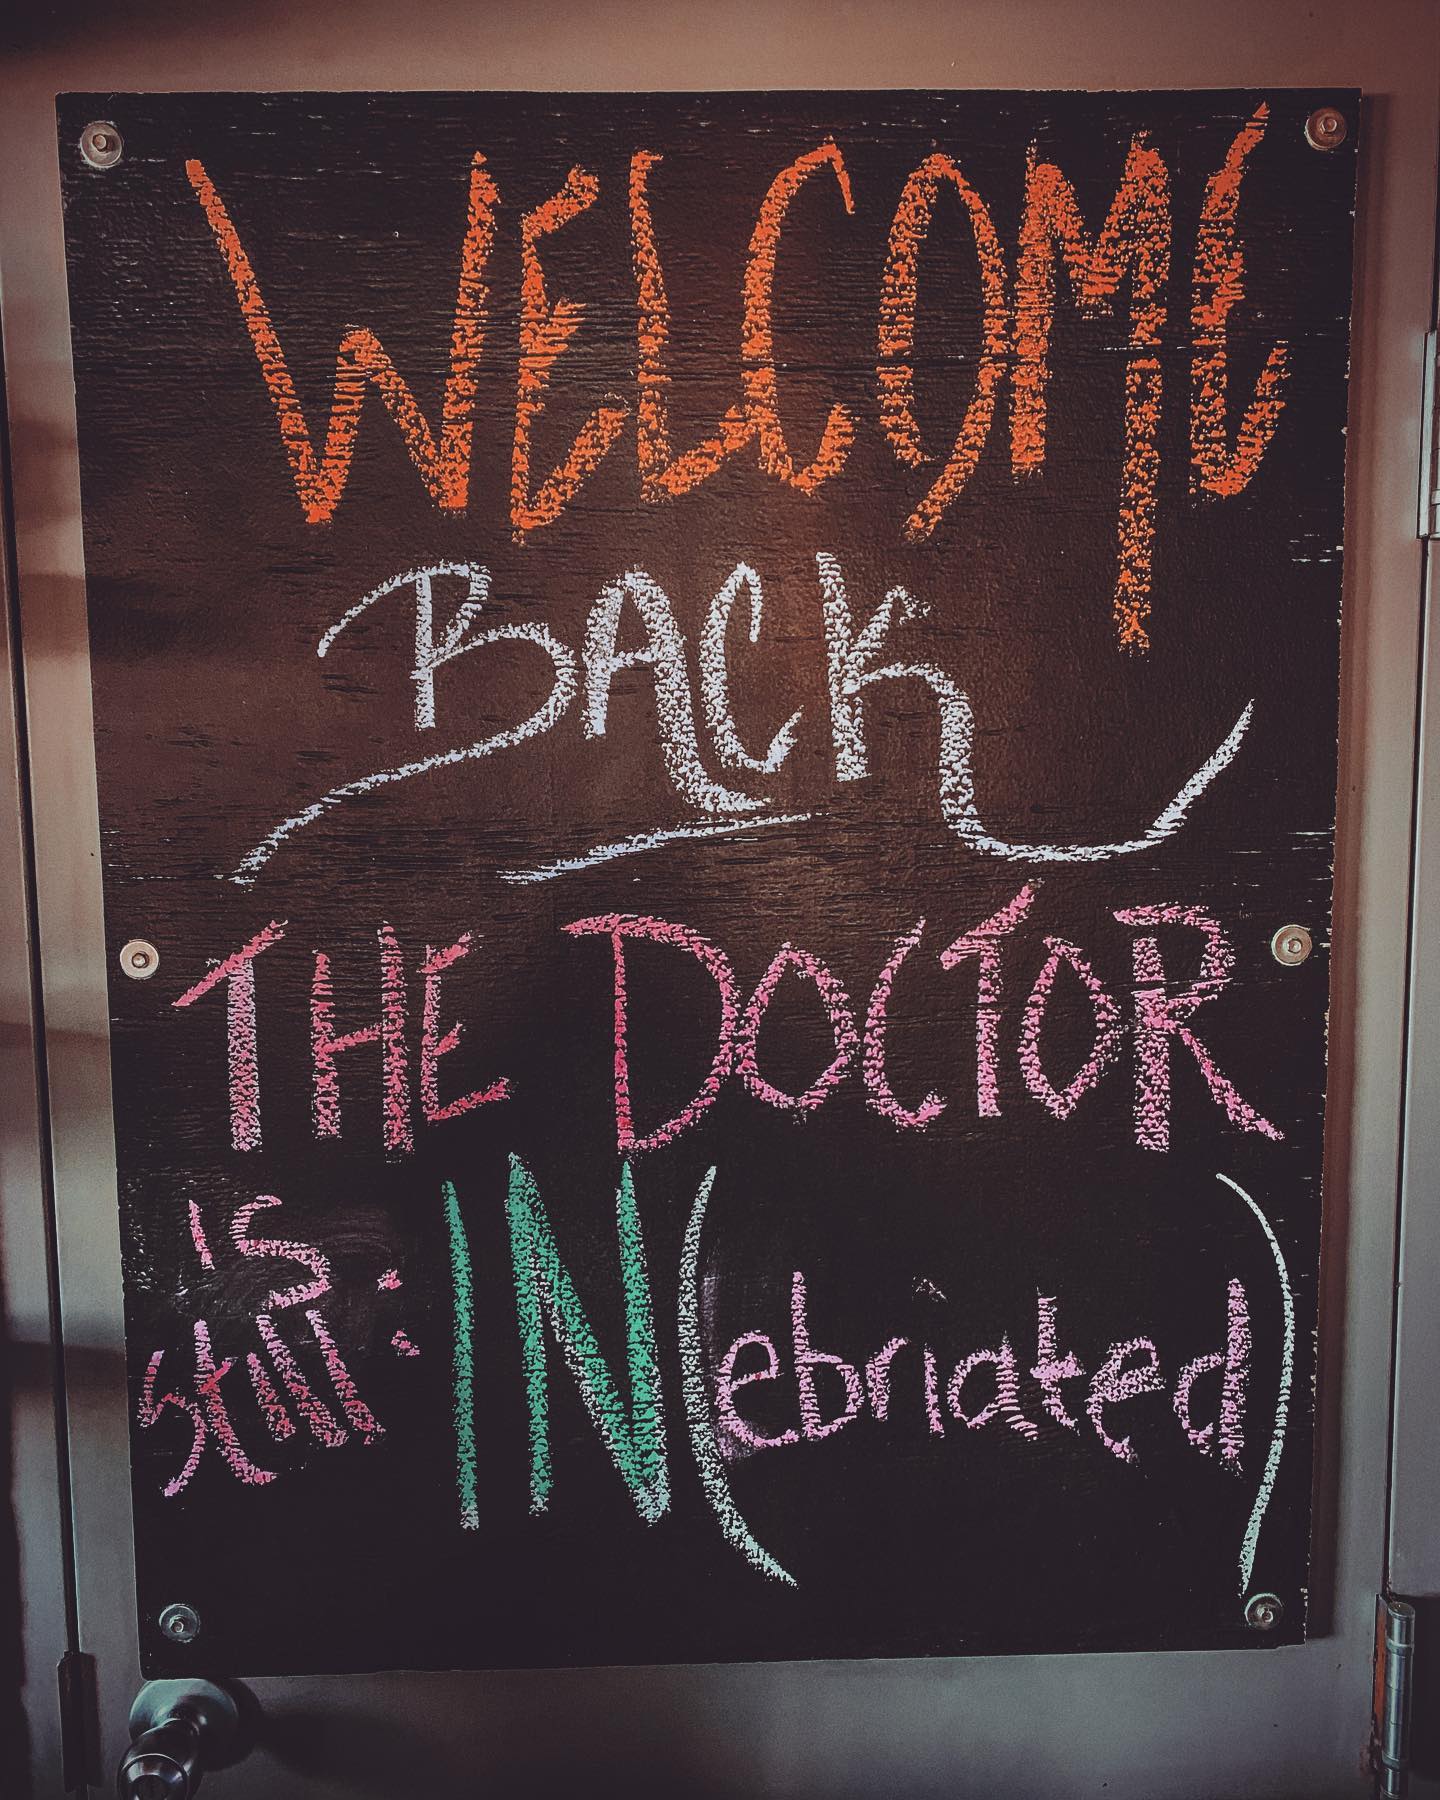 WELCOME
BACK
THE DOCTOR
is
still: IN(ebriated)